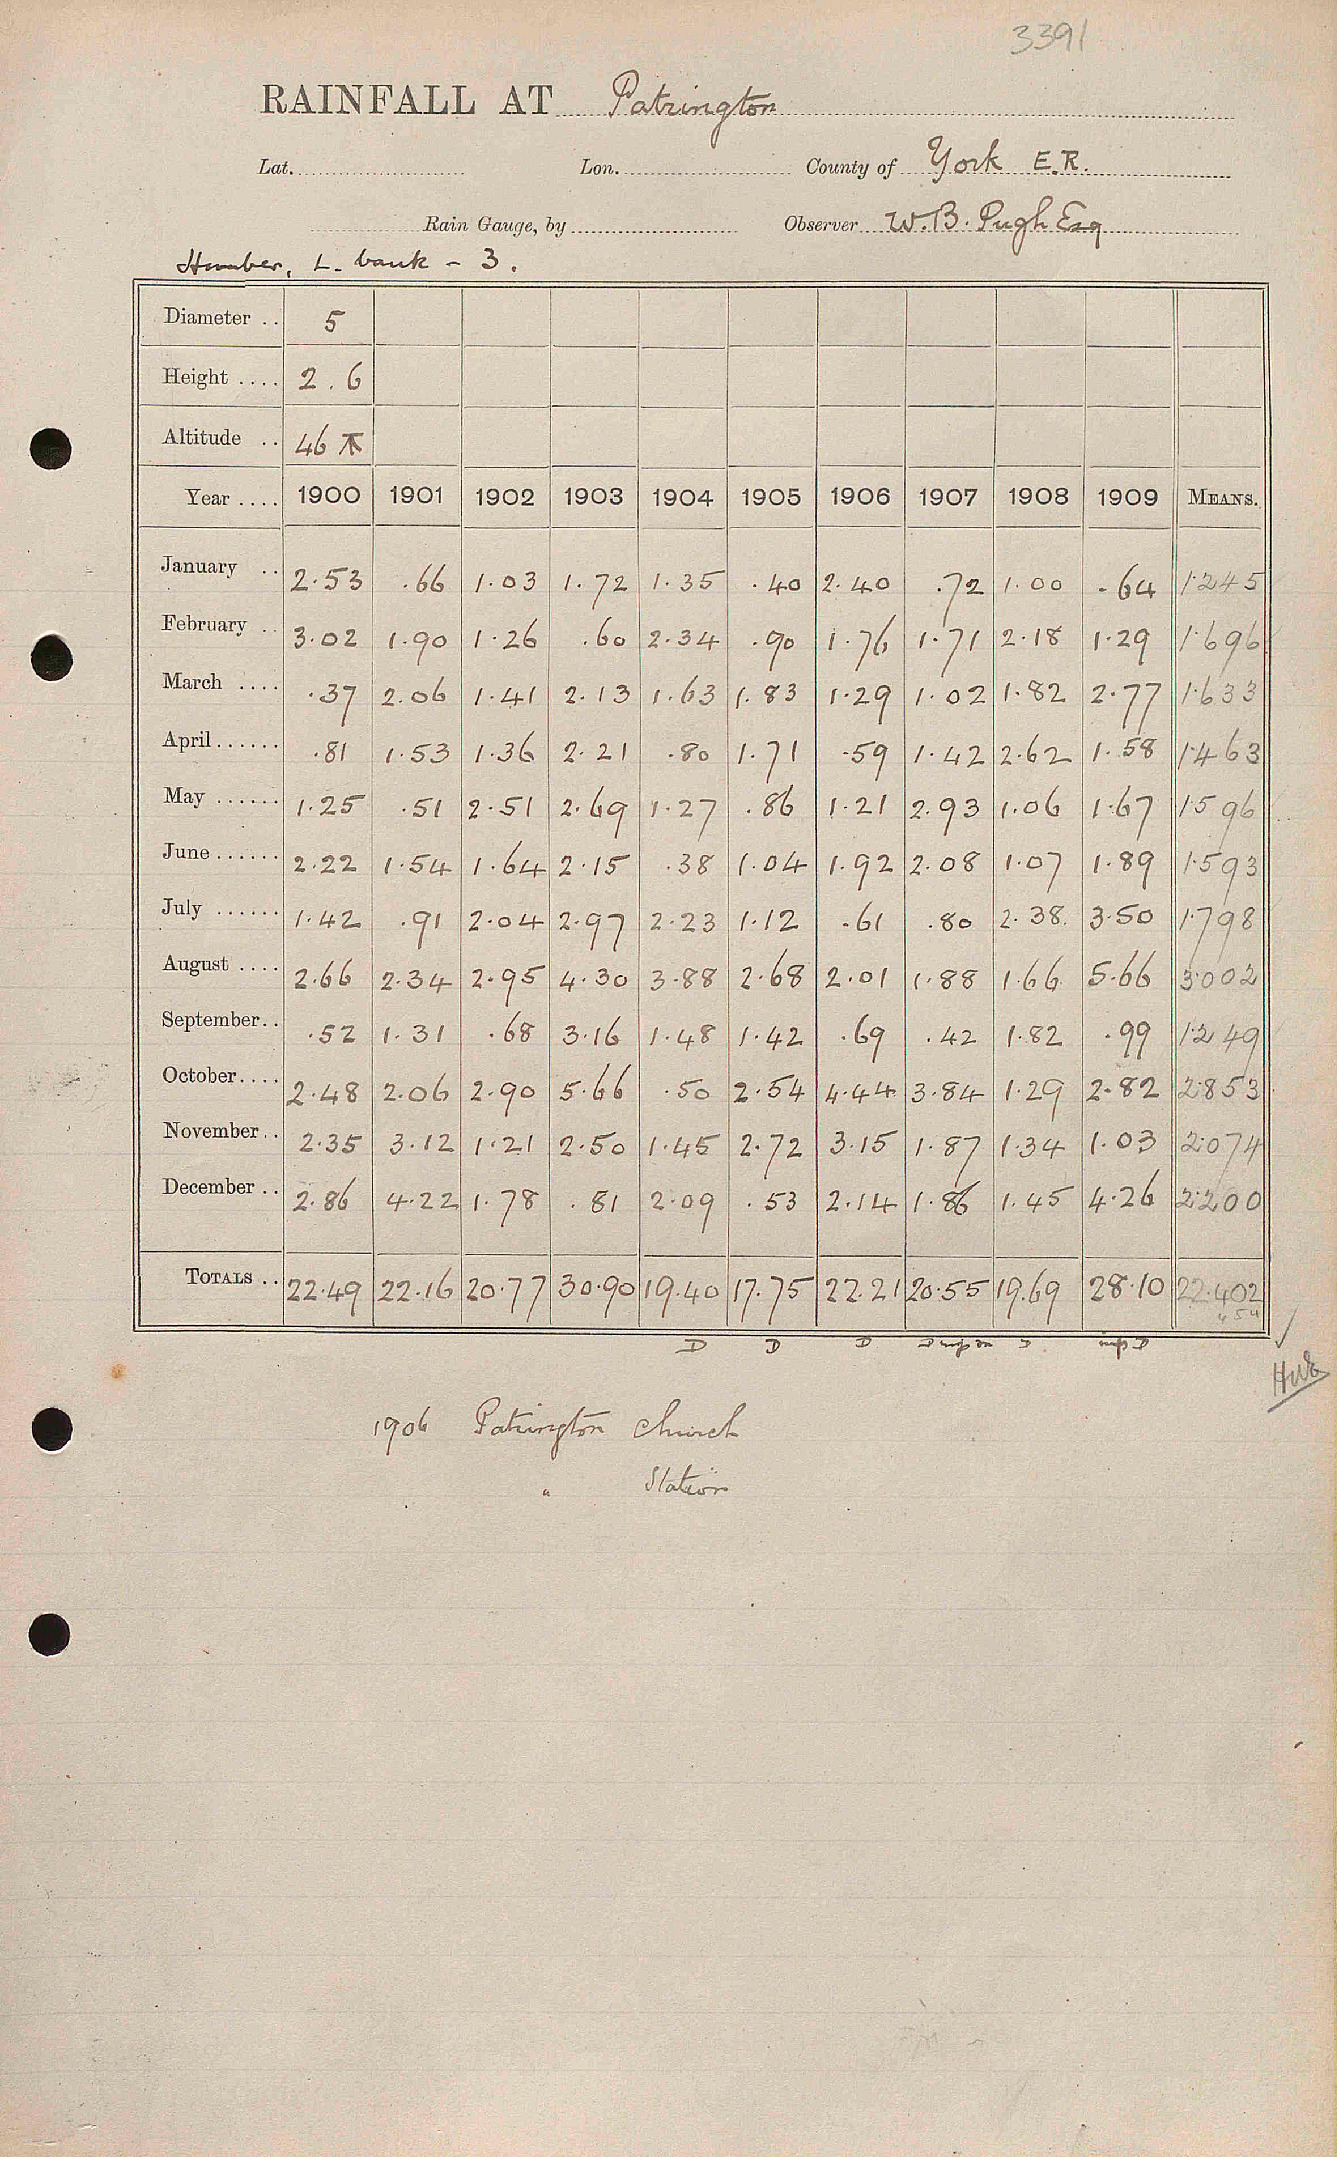 3391
RAINFALL AT Patrington
Lat. Lon. County of York E.R.
Rain Gauge, by Observer W.B. Pugh Esq
Humber, L. bank - 3.
Diameter .. 5
Height .... 2.6
Altitude .. 46
Year .... 1900 1901 1902 1903 1904 1905 1906 1907 1908 1909 MEANS.
January .. 2.53 .66 1.03 1.72 1.35 .40 2.40 .72 1.00 .64 1.245
February .. 3.02 1.90 1.26 .60 2.34 .90 1.76 1.71 2.18 1.29 1.696
March .... .37 2.06 1.41 2.13 1.63 1.83 1.29 1.02 1.82 2.77 1.633
April...... .81 1.53 1.36 2.21 .80 1.71 .59 1.42 2.62 1.58 1.463
May ...... 1.25 .51 2.51 2.69 1.27 .86 1.21 2.93 1.06 1.67 1.596
June...... 2.22 1.54 1.64 2.15 .38 1.04 1.92 2.08 1.07 1.89 1.593
July ...... 1.42 .91 2.04 2.97 2.23 1.12 .61 .80 2.38 3.50 1.798
August .... 2.66 2.34 2.95 4.30 3.88 2.68 2.01 1.88 1.66 5.66 3.002
September.. .52 1.31 .68 3.16 1.48 1.42 .69 .42 1.82 .99 1.249
October.... 2.48 2.06 2.90 5.66 .50 2.54 4.44 3.84 1.29 2.82 2.853
November.. 2.35 3.12 1.21 2.50 1.45 2.72 3.15 1.87 1.34 1.03 2.074
December .. 2.86 4.22 1.78 .81 2.09 .53 2.14 1.86 1.45 4.26 2.200
TOTALS .. 22.49 22.16 20.77 30.90 19.40 17.75 22.21 20.55 19.69 28.10 22.402
D D D D D D
1906 Patrington Church
" Station